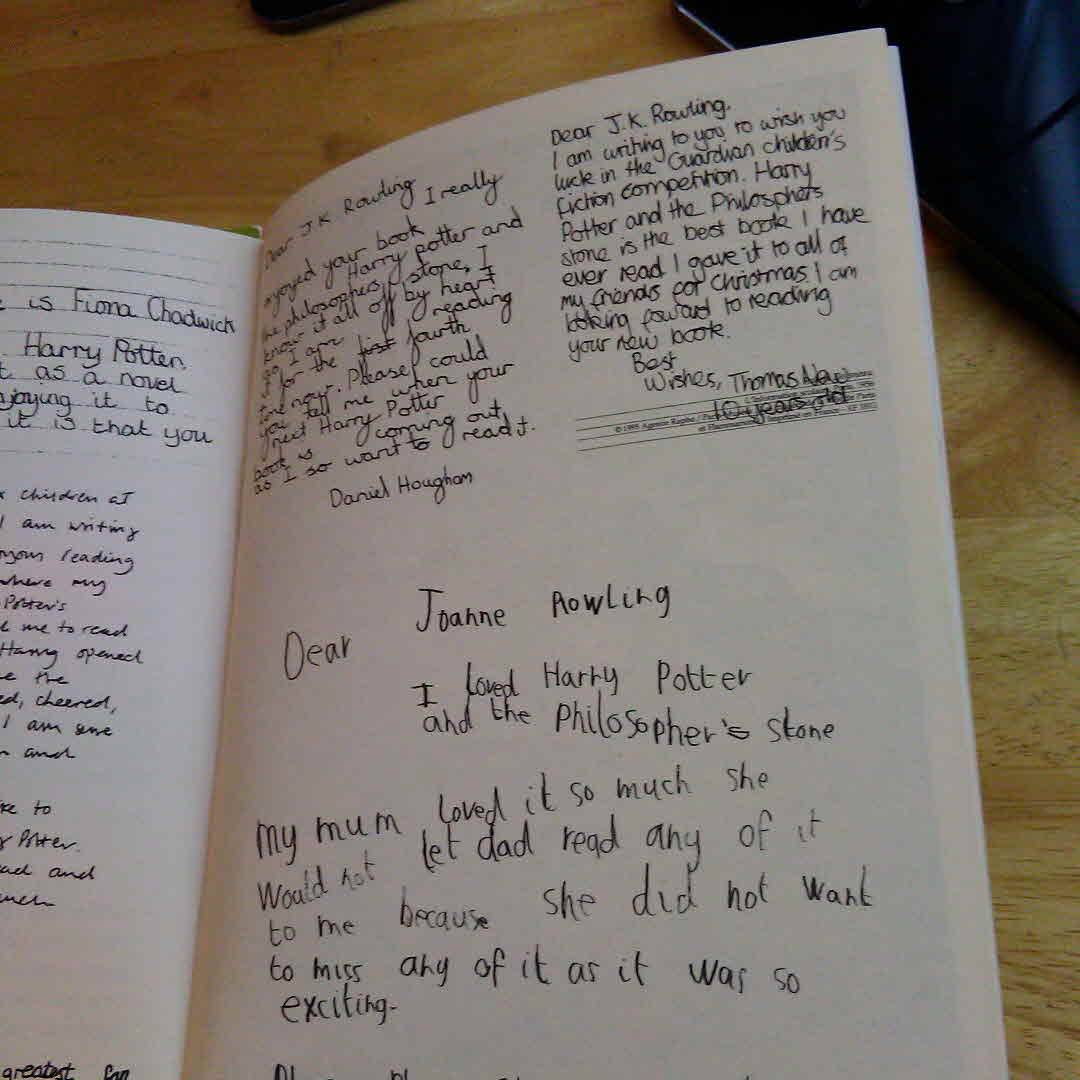 e is Fiona Chadwick
Harry Potter.
t as a novel
joying it to
it is that you
children at
I am writing
reading
where my
Potter's
me to read
Harry opened
the
ed, cheered,
I am sure
and
ke to
Potter.
and
greatest fan
Dear J.K. Rowling I really
enjoyed your book
Harry Potter and
the philosophers stone, I
know it all off by heart
so I am reading
it for the just fourth
time now. Please could
you tell me when your
next Harry Potter
book is coming out
as I so want to read it.
Daniel Hougham
Dear J.K. Rowling.
I am writing to you to wish you
luck in the Guardian children's
fiction competition. Harry
Potter and the Philosophers
stone is the best book I have
ever read I gave it to all of
my friends for Christmas. I am
looking foward to reading
your new book.
Best
Wishes, Thomas
10 years old
© 1995 Agence
Dear Joanne Rowling
I loved Harry Potter
and the Philosopher's stone
my mum loved it so much she
Would not let dad read any of it
to me because she did not want
to miss any of it as it was so
exciting.